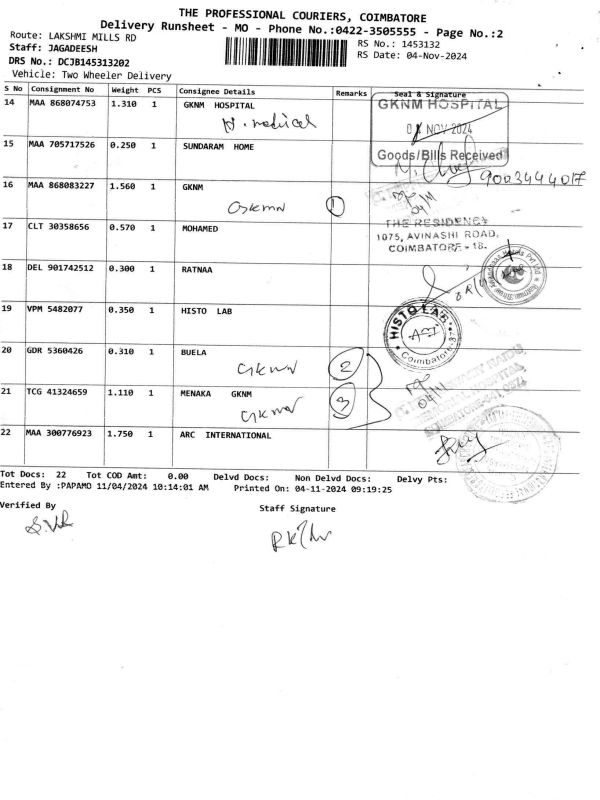 THE PROFESSIONAL COURIERS, COIMBATORE
Delivery Runsheet - MO - Phone No.:0422-3505555 - Page No.:2
Route: LAKSHMI MILLS RD
RS No.: 1453132
Staff: JAGADEESH
RS Date: 04-Nov-2024
DRS No.: DCJB145313202
Vehicle: Two Wheeler Delivery
S No Consignment No Weight PCS Consignee Details Remarks Seal & Signature
14 MAA 868074753 1.310 1 GKNM HOSPITAL
GKNM HOSPITAL
NOV 2024
Goods/Bills Received
15 MAA 705717526 0.250 1 SUNDARAM HOME
9003444017
16 MAA 868083227 1.560 1 GKNM
GKNM 1
04/11
17 CLT 30358656 0.570 1 MOHAMED
THE RESIDENCY
1075, AVINASHI ROAD,
COIMBATORE - 18.
18 DEL 901742512 0.300 1 RATNAA
19 VPM 5482077 0.350 1 HISTO LAB
HISTO LAB
Coimbatore-37
20 GDR 5360426 0.310 1 BUELA
GKNM 2
21 TCG 41324659 1.110 1 MENAKA GKNM
GKNM 3
04/11
22 MAA 300776923 1.750 1 ARC INTERNATIONAL
Tot Docs: 22 Tot COD Amt: 0.00 Delvd Docs: Non Delvd Docs: Delvy Pts:
Entered By :PAPAMO 11/04/2024 10:14:01 AM Printed On: 04-11-2024 09:19:25
Verified By
Staff Signature